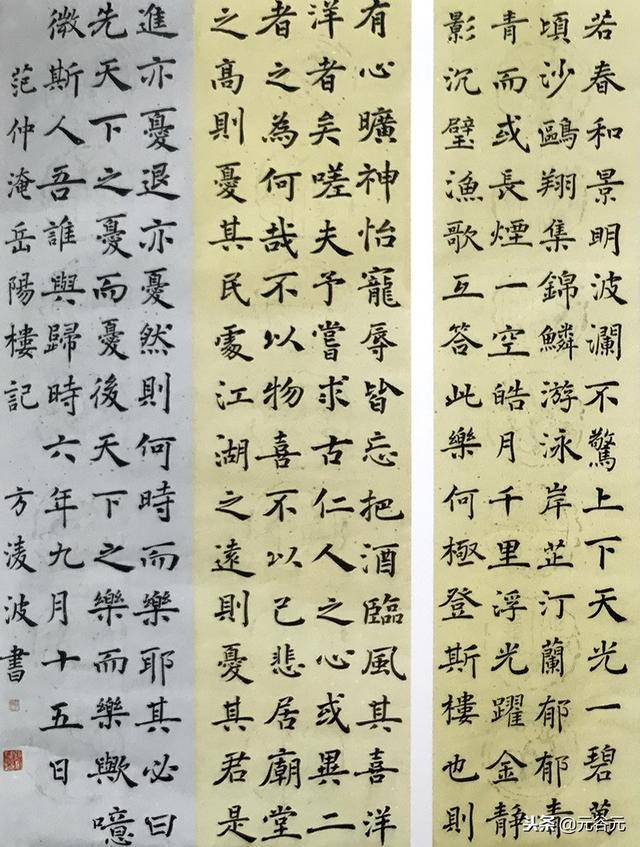 若春和景明波瀾不驚上下天光一碧萬
頃沙鷗翔集錦鱗游泳岸芷汀蘭郁郁青
青而或長煙一空皓月千里浮光躍金靜
影沉璧漁歌互答此樂何極登斯樓也則
有心曠神怡寵辱皆忘把酒臨風其喜洋
洋者矣嗟夫予嘗求古仁人之心或異二
者之為何哉不以物喜不以己悲居廟堂
之高則憂其民處江湖之遠則憂其君是
進亦憂退亦憂然則何時而樂耶其必曰
先天下之憂而憂後天下之樂而樂歟噫
微斯人吾誰與歸時六年九月十五日
范仲淹岳陽樓記 方淩波書
头条 @元谷元